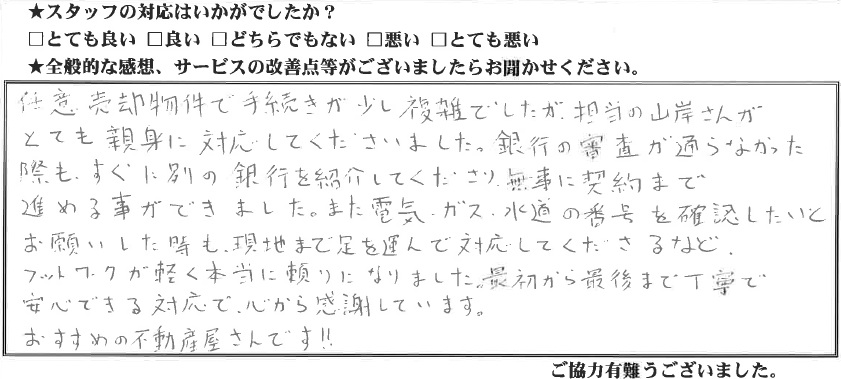 ★スタッフの対応はいかがでしたか？
□とても良い □良い □どちらでもない □悪い □とても悪い
★全般的な感想、サービスの改善点等がございましたらお聞かせください。
任意売却物件で手続きが少し複雑でしたが、担当の山岸さんが
とても親身に対応してくださいました。銀行の審査が通らなかった
際も、すぐに別の銀行を紹介してくださり、無事に契約まで
進める事ができました。また電気、ガス、水道の番号を確認したいと
お願いした時も、現地まで足を運んで対応してくださるなど、
フットワークが軽く本当に頼りになりました。最初から最後まで丁寧で
安心できる対応で、心から感謝しています。
おすすめの不動産屋さんです!!
ご協力有難うございました。